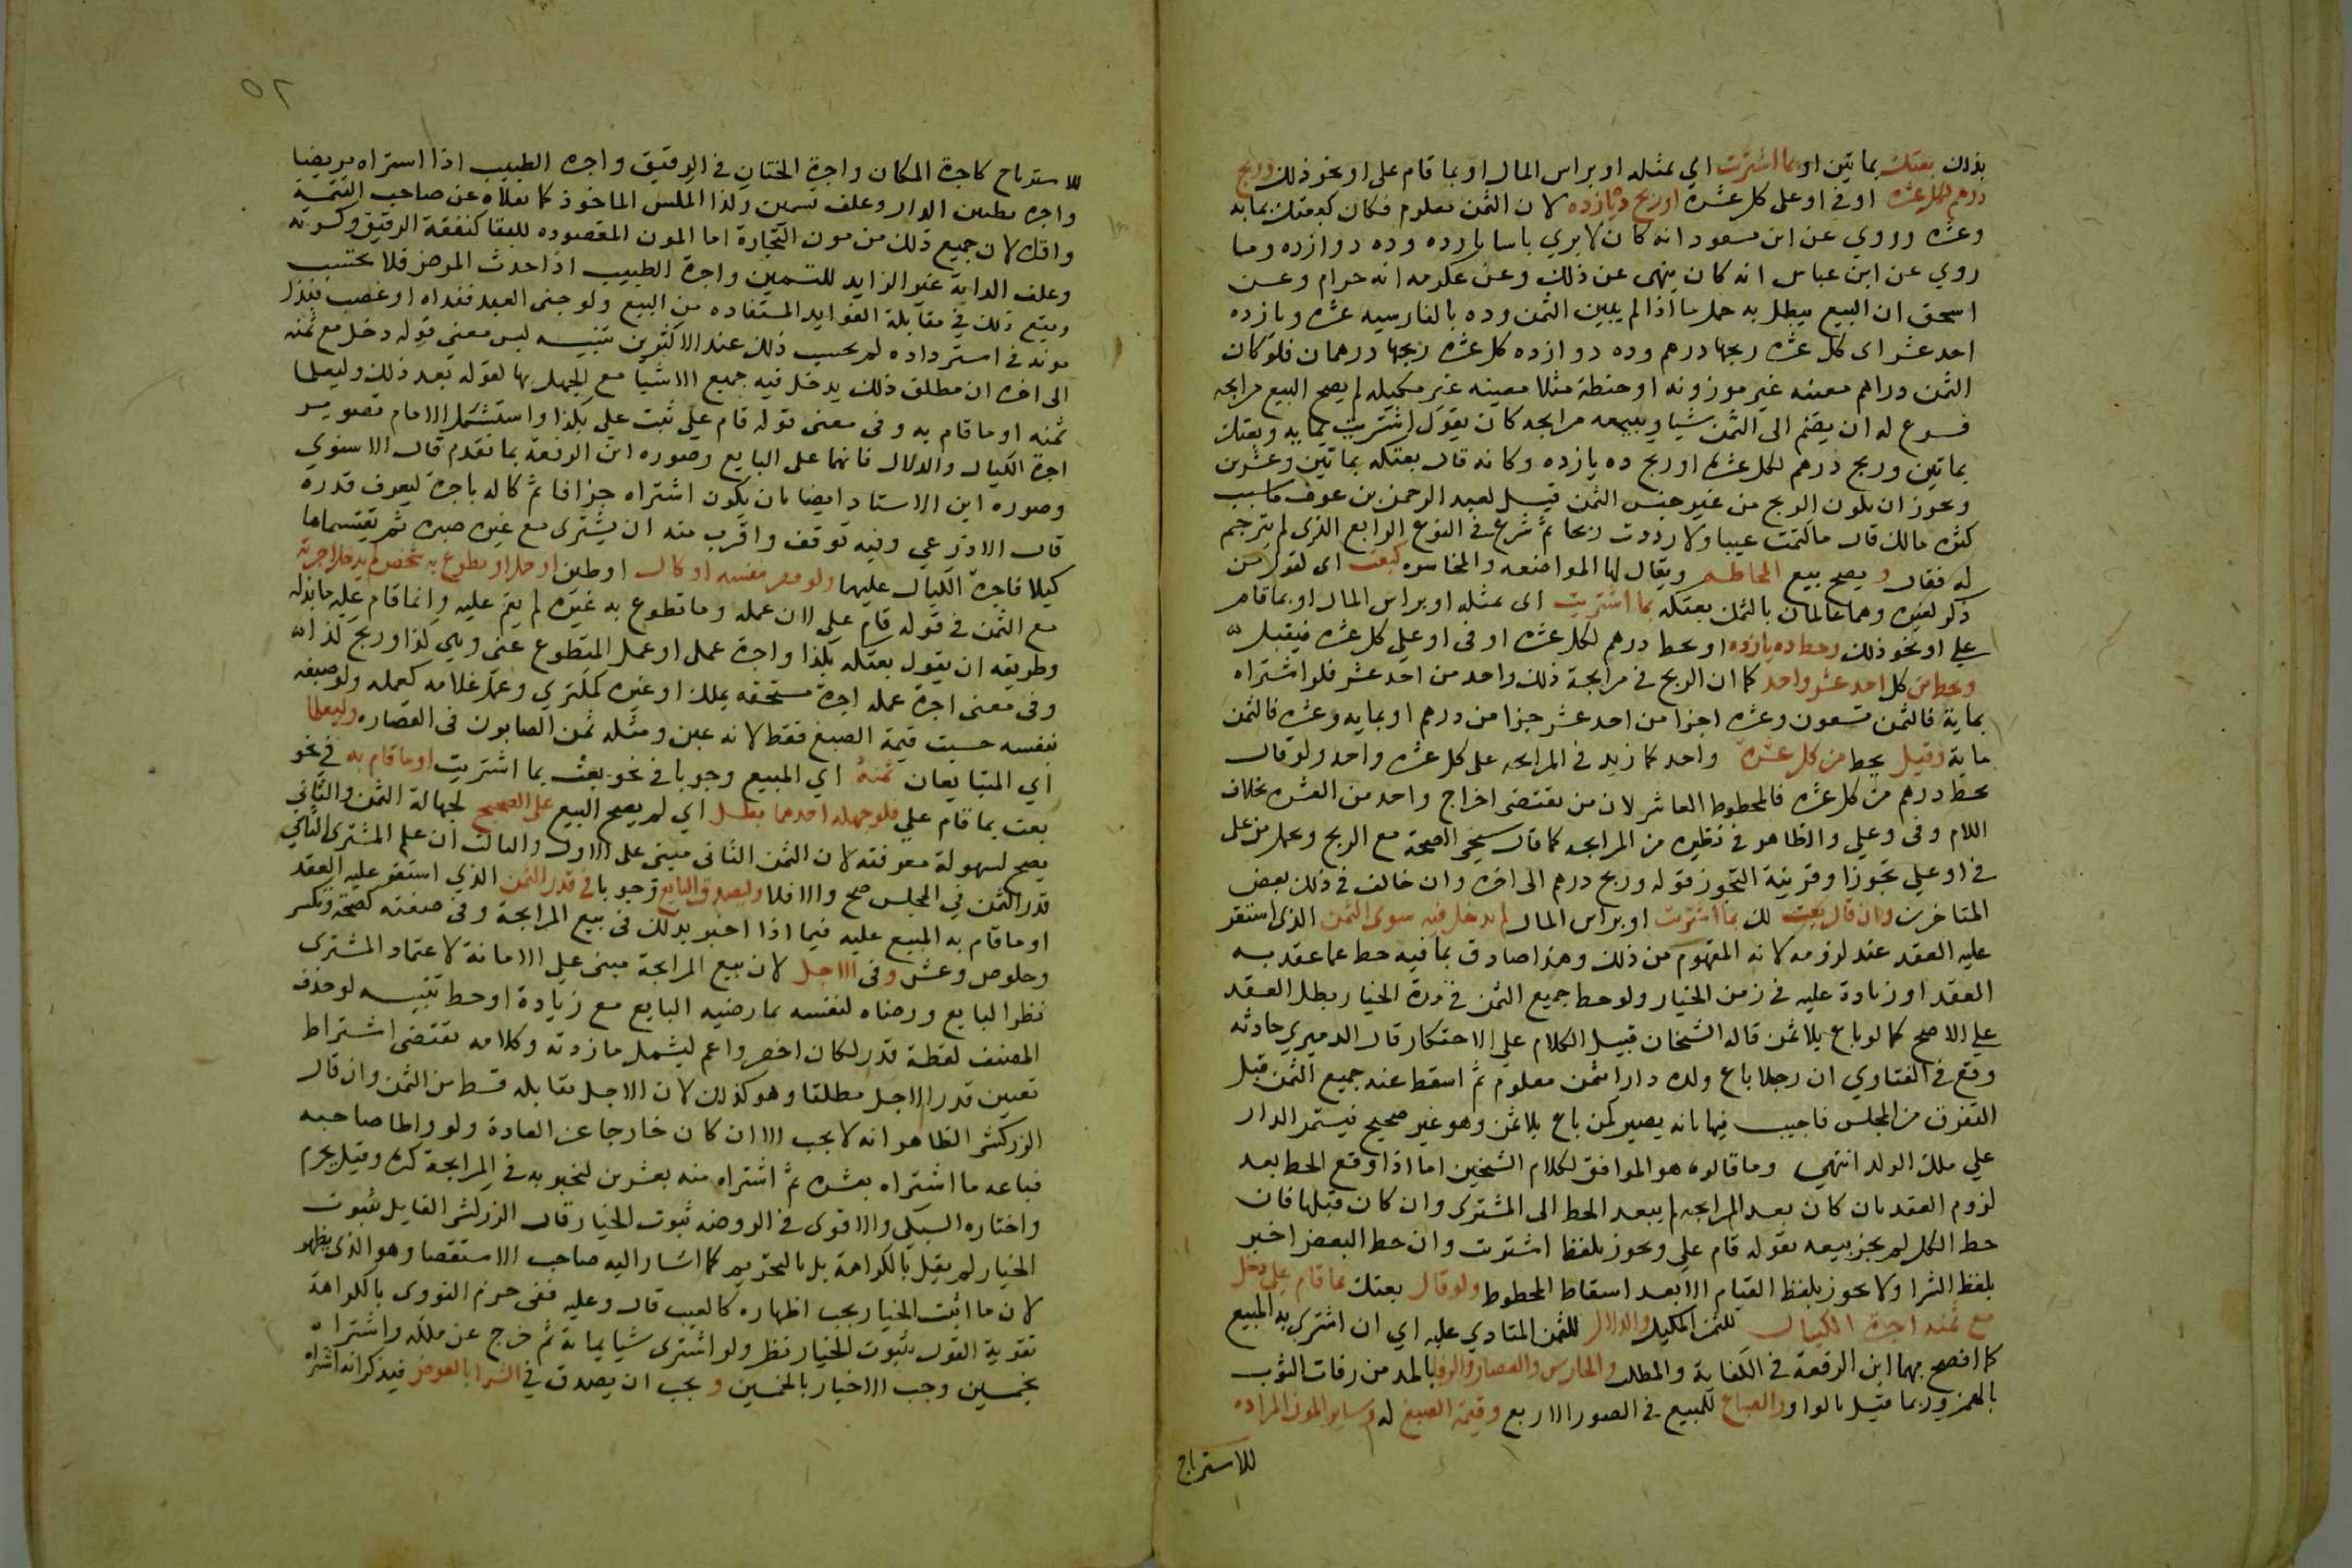 بذلك بعتك بماتين او بما اشتريت اي بمثله او براس المال او بما قام على او نحو ذلك وربح
درهم لكل عشره او في او على كل عشرة او ربح ده يازده لان الثمن معلوم فكان كبعتك بمايه
وعشره وروي عن ابن مسعود انه كان لا يري باسا بده يازده وده دوازده وما
روي عن ابن عباس انه كان ينهى عن ذلك وعن عكرمه انه حرام وعن
اسحق ان البيع يبطل به حمل ما اذا لم يبين الثمن وده بالفارسيه عشره ويازده
احد عشر اى كل عشره ربحها درهم وده دوازده كل عشره ربحها درهمان فلو كان
الثمن دراهم معينه غير موزونه او حنطة مثلا معينه غير مكيله لم يصح البيع مرابحه
فرع له ان يضم الى الثمن شيا ويبيعه مرابحه كان يقول اشتريت بمايه وبعتك
بماتين وربح درهم لكل عشره او ربح ده يازده وكانه قال بعتكه بماتين وعشرين
ويجوز ان يكون الربح من غير جنس الثمن قيل لعبد الرحمن بن عوف ما سبب
كثره مالك قال ما كتمت عيبا ولا رددت ربحا ثم شرع في النوع الرابع الذى لم يترجم
له فقال و يصح بيع المحاطه ويقال لها المواضعه والمخاسره كبعت اى كقول من
ذكر لغيره وهما عالمان بالثمن بعتكه بما اشتريت اى بمثله او براس المال او بما قام
علي او نحو ذلك وحط ده يازده او بحط درهم لكل عشره او في او علي كل عشره فيقبل
ويحط من كل احد عشر واحد كما ان الربح في مرابحة ذلك واحد من احد عشر فلو اشتراه
بماية فالثمن تسعون وعشره اجزا من احد عشر جزا من درهم او بمايه وعشره فالثمن
ماية وقيل يحط من كل عشرة واحد كما زيد في المرابحه على كل عشره واحد ولو قال
بحط درهم من كل عشره فالمحطوط العاشر لان من تقتضى اخراج واحد من العشره بخلاف
اللام وفى وعلي والظاهر في نظيره من المرابحه كما قال شيخي الصحة مع الربح وبحمل من على
في او علي تجوزا وقرينة التجوز قوله وربح درهم الى اخره وان خالف في ذلك بعض
المتاخرين وان قال بعت لك بما اشتريت او براس المال لم يدخل فيه سوى الثمن الذى استقر
عليه العقد عند لزومه لانه المفهوم من ذلك وهذا صادق بما فيه حط عما عقد به
العقد او زيادة عليه في زمن الخيار ولو حط جميع الثمن في مدة الخيار بطل العقد
علي الاصح كما لو باع بلا ثمن قاله الشيخان قبيل الكلام علي الاحتكار قال الدميري حادثه
وقع في الفتاوي ان رجلا باع ولده دارا بثمن معلوم ثم اسقط عنه جميع الثمن قبل
التفرق من المجلس فاجيب فيها بانه يصير كمن باع بلا ثمن وهو غير صحيح فيستمر الدار
علي ملك الولد انتهي وما قالوه هو الموافق لكلام الشيخين اما اذا وقع الحط بعد
لزوم العقد بان كان بعد المرابحه لم يتعد الحط الى المشترى وان كان قبلها فان
حط الكل لم يجز بيعه بقوله قام علي ويجوز بلفظ اشتريت وان حط البعض اخبر
بلفظ الشرا ولا يجوز بلفظ القيام الا بعد اسقاط المحطوط ولو قال بعتك بما قام علي دخل
مع ثمنه اجرة الكيال للثمن المكيل والدلال للثمن المنادي عليه اي ان اشترى به المبيع
كما افصح بهما ابن الرفعة في الكفاية والمطلب والحارس والقصار والرفا بالمد من رفات الثوب
بالهمز وربما قيل بالواو والصباغ للمبيع في الصور الاربع وقيمة الصبغ له وساير المون المراده
للاسترباح
٥٢
للاسترباح كاجرة المكان واجرة الختان في الرقيق واجره الطبيب اذا اشتراه مريضا
واجره تطيين الدار وعلف تسمين وكذا المكس الماخوذ كما نقلاه عن صاحب التتمة
واقراه لان جميع ذلك من مون التجارة اما المون المقصوده للبقا كنفقة الرقيق وكسوته
وعلف الدابة غير الزايد للتسمين واجرة الطبيب اذا حدث المرض فلا يحتسب
ويقع ذلك في مقابلة الفوايد المستفاده من المبيع ولو جنى العبد ففداه او غصب فبذل
مونه في استرداده لم يحسب ذلك عند الاكثرين تنبيه ليس معنى قوله دخل مع ثمنه
الى اخره ان مطلق ذلك يدخل فيه جميع الاشيا مع الجهل بها لقوله بعد ذلك وليعلما
ثمنه او ما قام به وفى معنى قوله قام علي ثبت علي بكذا واستشكل الامام تصوير
اجرة الكيال والدلال فانهما على البايع وصوره ابن الرفعة بما تقدم قال الاسنوي
وصوره ابن الاستاد ايضا بان يكون اشتراه جزافا ثم كاله باجرة ليعرف قدره
قال الاذرعي وفيه توقف واقرب منه ان يشترى مع غيره صبره ثم يقتسماها
كيلا فاجرة الكيال عليهما ولو قصر بنفسه او كال او طين او حمل او تطوع به شخص لم يدخل اجرته
مع الثمن في قوله قام علي لان عمله وما تطوع به غيره لم يقم عليه وانما قام عليه ما بذله
وطريقه ان يقول بعتكه بكذا واجرة عملى او عمل المتطوع عنى وهي كذا وربح كذا
وفى معنى اجرة عمله اجرة مستحقه بملك او غيره كمكترى وعمل غلامه كعمله ولو صبغه
بنفسه حسبت قيمة الصبغ فقط لانه عين ومثله ثمن الصابون فى القصاره وليعلما
اي المتبايعان ثمنه اي المبيع وجوبا في نحو بعت بما اشتريت او ما قام به في نحو
بعت بما قام علي فلو جهله احدهما بطل اي لم يصح البيع على الصحيح لجهالة الثمن والثاني
يصح لسهولة معرفته لان الثمن الثانى مبنى على الاول والثالث ان علم المشترى الثاني
قدر الثمن في المجلس صح والا فلا وليصدق البايع وجوبا في قدر الثمن الذي استقر عليه العقد
او ما قام به المبيع عليه فيما اذا اخبر بذلك في بيع المرابحة وفى صفته كصحة وتكسر
وخلوص وغش وفى الاجل لان بيع المرابحة مبنى على الامانة لاعتماد المشترى
نظر البايع ورضاه لنفسه بما رضيه البايع مع زيادة او حط تنبيه لو حذف
المصنف لفظة قدر لكان اخصر واعم ليشمل ما زدته وكلامه تقتضى اشتراط
تعيين قدر الاجل مطلقا وهو كذلك لان الاجل يقابله قسط من الثمن وان قال
الزركشى الظاهر انه لا يجب الا ان كان خارجا عن العادة ولو واطا صاحبه
فباعه ما اشتراه بعشره ثم اشتراه منه بعشرين ليخبر به في المرابحة كره وقيل يحرم
واختاره السبكي والاقوى فى الروضه ثبوت الخيار وقال الزركشى القايل بثبوت
الخيار لم يقل بالكراهة بل بالتحريم كما اشار اليه صاحب الاستقصا وهو الذى يظهر
لان ما اثبت الخيار يجب اظهاره كالعيب قال وعليه ففى جزم النووى بالكراهة
تقوية القول بثبوت الخيار نظر ولو اشترى شيا بماية ثم خرج عن ملكه واشتراه
بخمسين وجب الاخبار بالخمسين و يجب ان يصدق في الشرا بالعرض فيذكر انه اشتراه